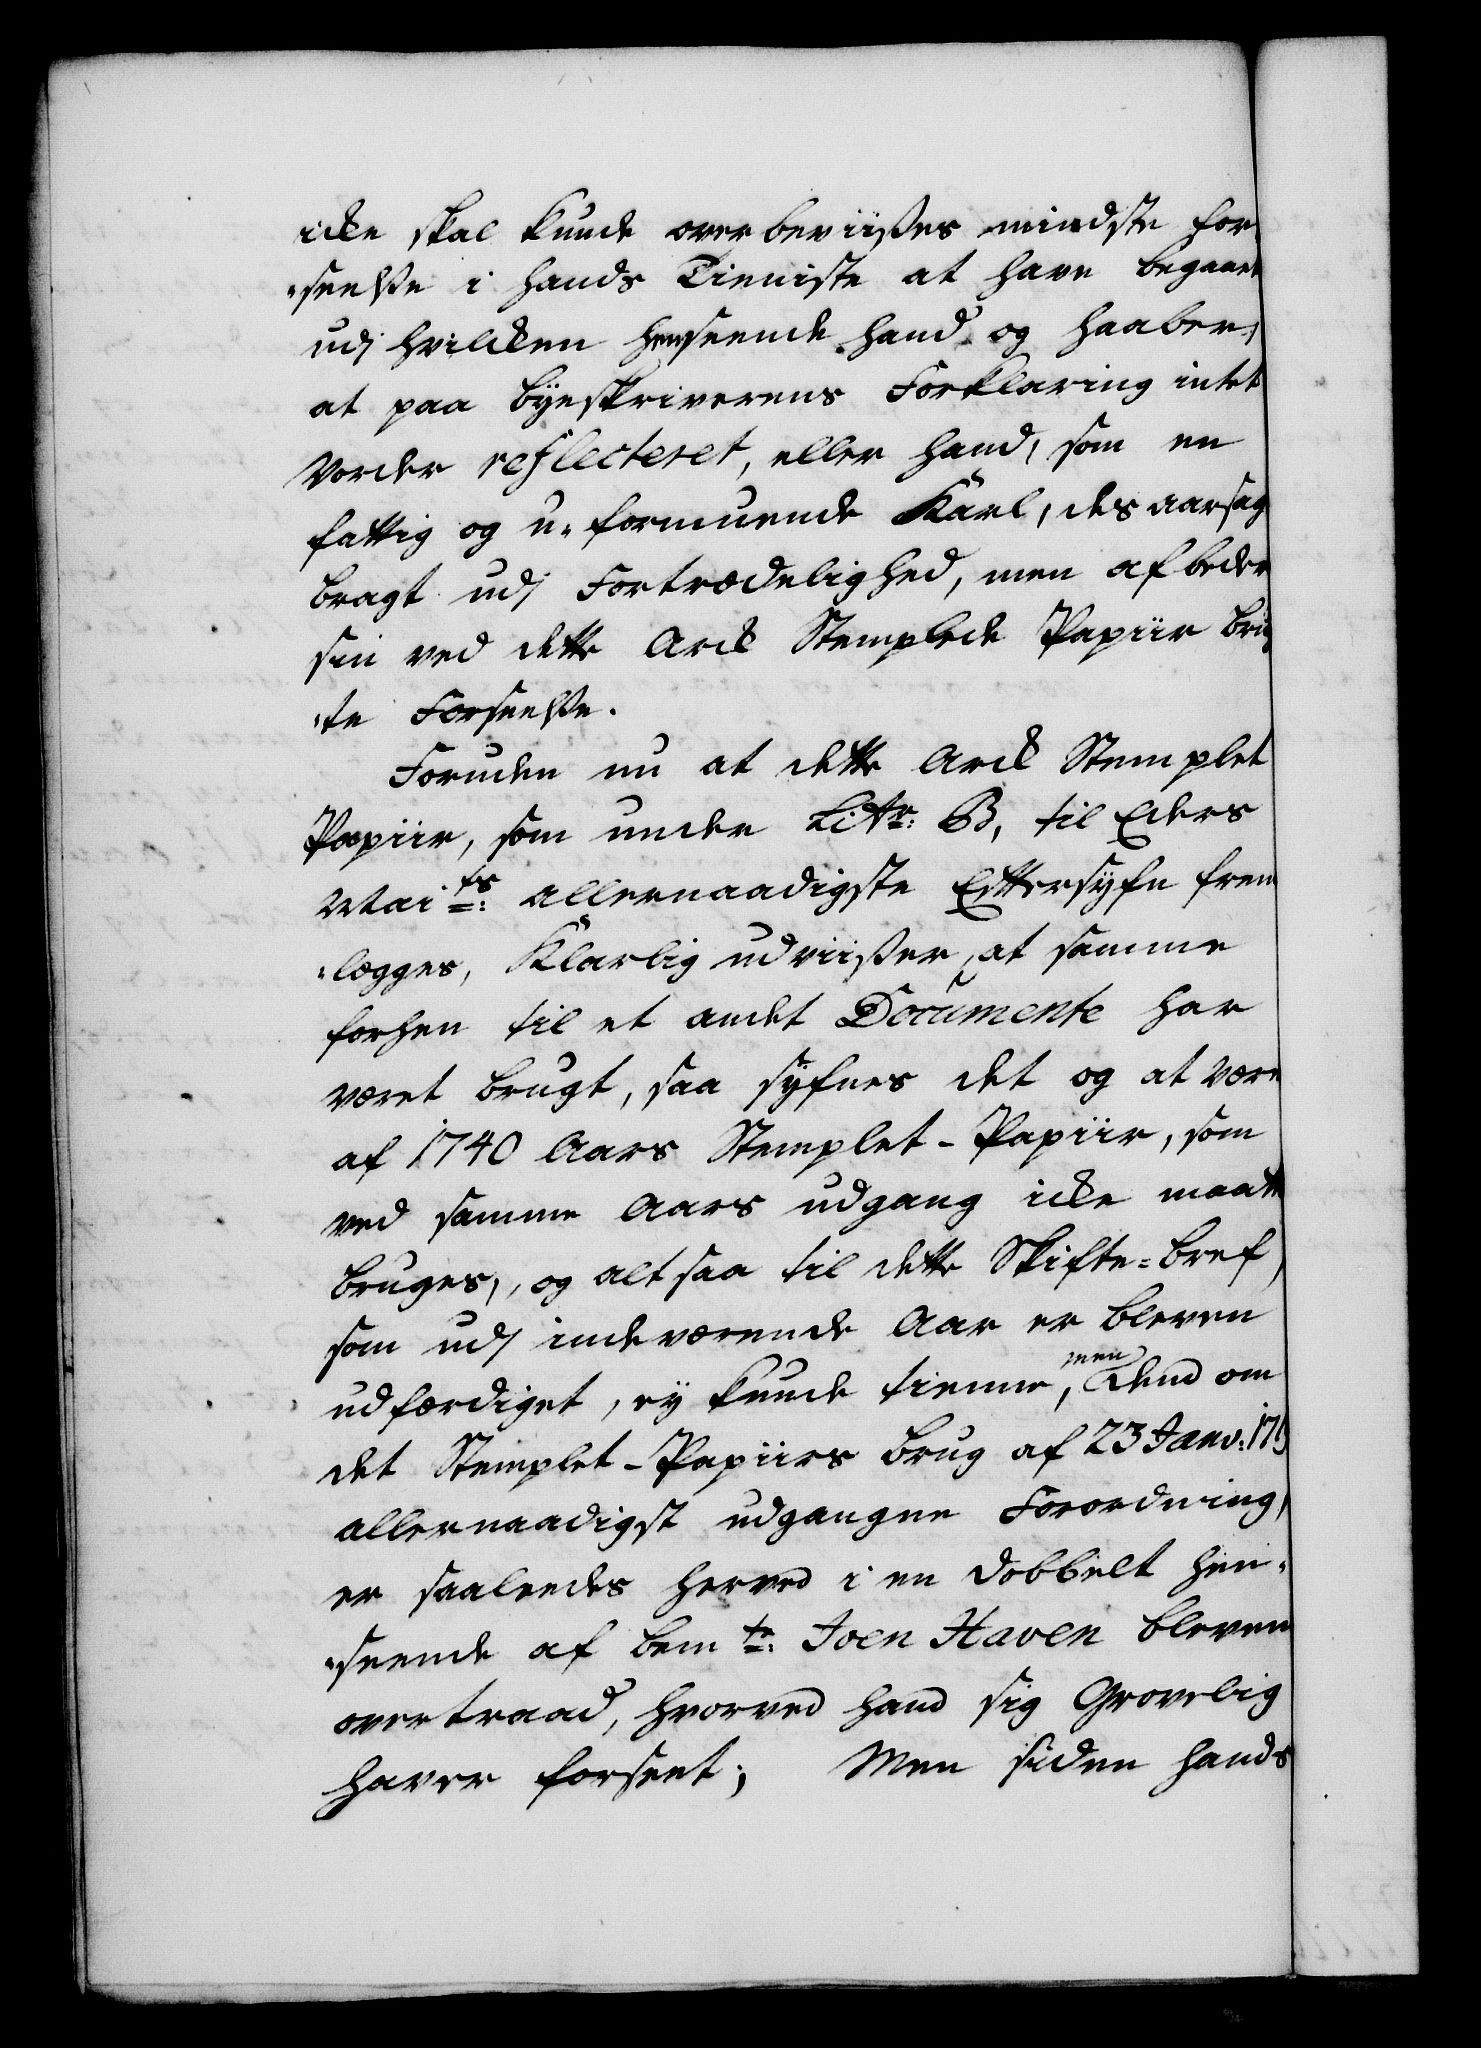 icke skal kunde overbeviises mindste for
-seelse i hands Tieniste at have begaaet
udj hvilcken henseende hand og haaber,
at paa Byeskriverens Forklaring intet
vorder reflecteret, eller hand, som en
fattig og u-formuende Karl, des aarsag
bragt udj Fortrædelighed, men afbeder
sin ved dette Arck Stemplede Papiir brug
-te Forseelse.
Foruden nu at dette Arck Stemplet
Papiir, som under Littr: B, til Eders
Mai ts: allernaadigste Eftersyfn frem
-lægges, Klarlig udviiser, at samme
forhen til et andet Documente har
været brugt, saa syfnes det og at være
af 1740 Aars Stemplet-Papiir, som
ved samme Aars udgang icke maatte
bruges, og altsaa til dette Skifte-bref,
som udj indeværende Aar er bleven
udfærdiget, ey kunde tienne, men Dend om
det Stemplet-Papiirs brug af 23 Janv: 171
allernaadigst udgangne Forordning,
er saaleedes herved i en dobbelt hen-
-seende af bem te: Joen Haven bleven
overtraad, hvorved hand sig Grovelig
haver forseet; Men siden hands